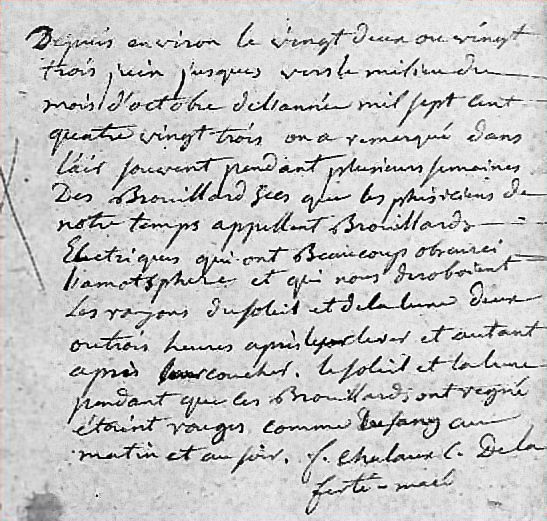 Depuis environ le vingt deux ou vingt
trois juin jusques vers le milieu du
mois d'octobre de l'année mil sept cent
quatre vingt trois on a remarqué dans
l'air souvent pendant plusieurs semaines
Des Brouillards secs que les phisiciens de
notre temps appellent Brouillards
Electriques qui ont Beaucoup obscurci
l'amotsphere et qui nous deroboient
Les rayons du soleil et de la lune deux
ou trois heures après leur lever et autant
après leur coucher. le soleil et la lune
pendant que ces Brouillards ont regné
étoint rouges comme le sang au
matin et au soir. c. De la
ferté-